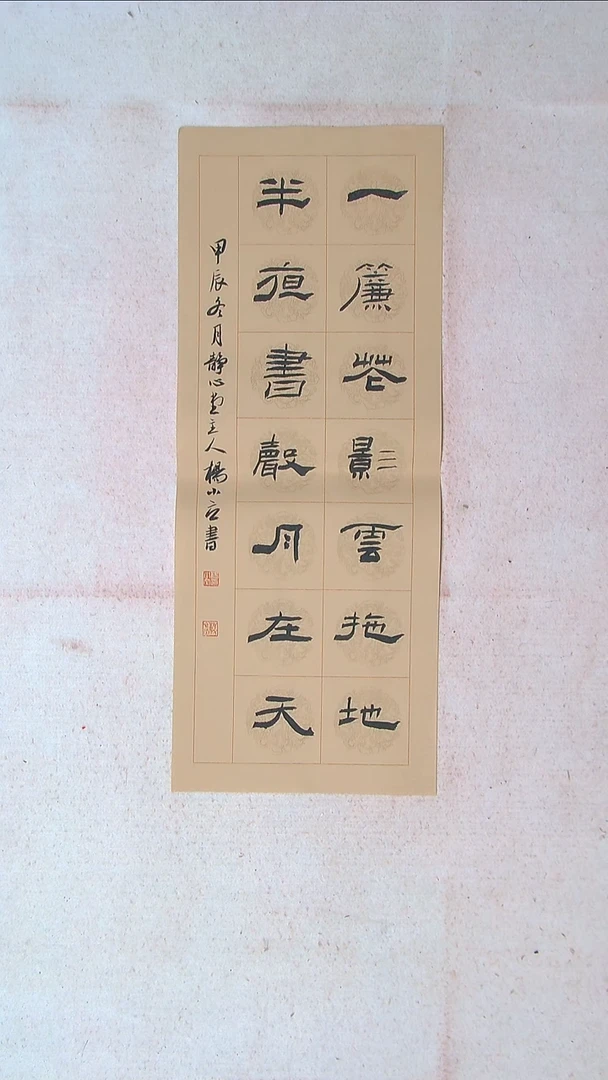 一簾花影雲拖地
半夜書聲月在天
甲辰冬月静心堂主人楊小京書